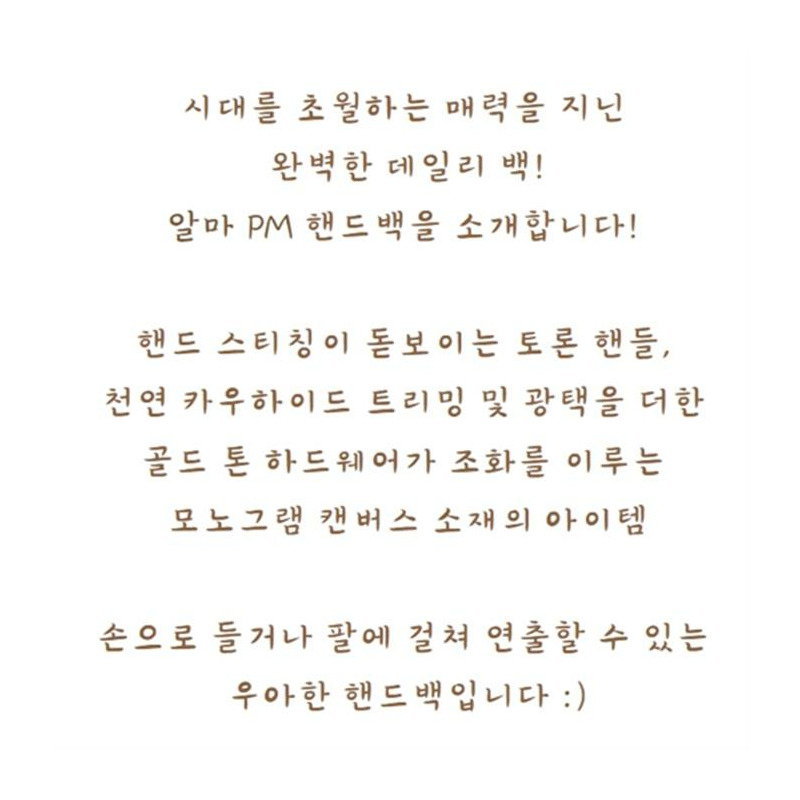 시대를 초월하는 매력을 지닌
완벽한 데일리 백!
알마 PM 핸드백을 소개합니다!
핸드 스티칭이 돋보이는 토론 핸들,
천연 카우하이드 트리밍 및 광택을 더한
골드 톤 하드웨어가 조화를 이루는
모노그램 캔버스 소재의 아이템
손으로 들거나 팔에 걸쳐 연출할 수 있는
우아한 핸드백입니다 :)